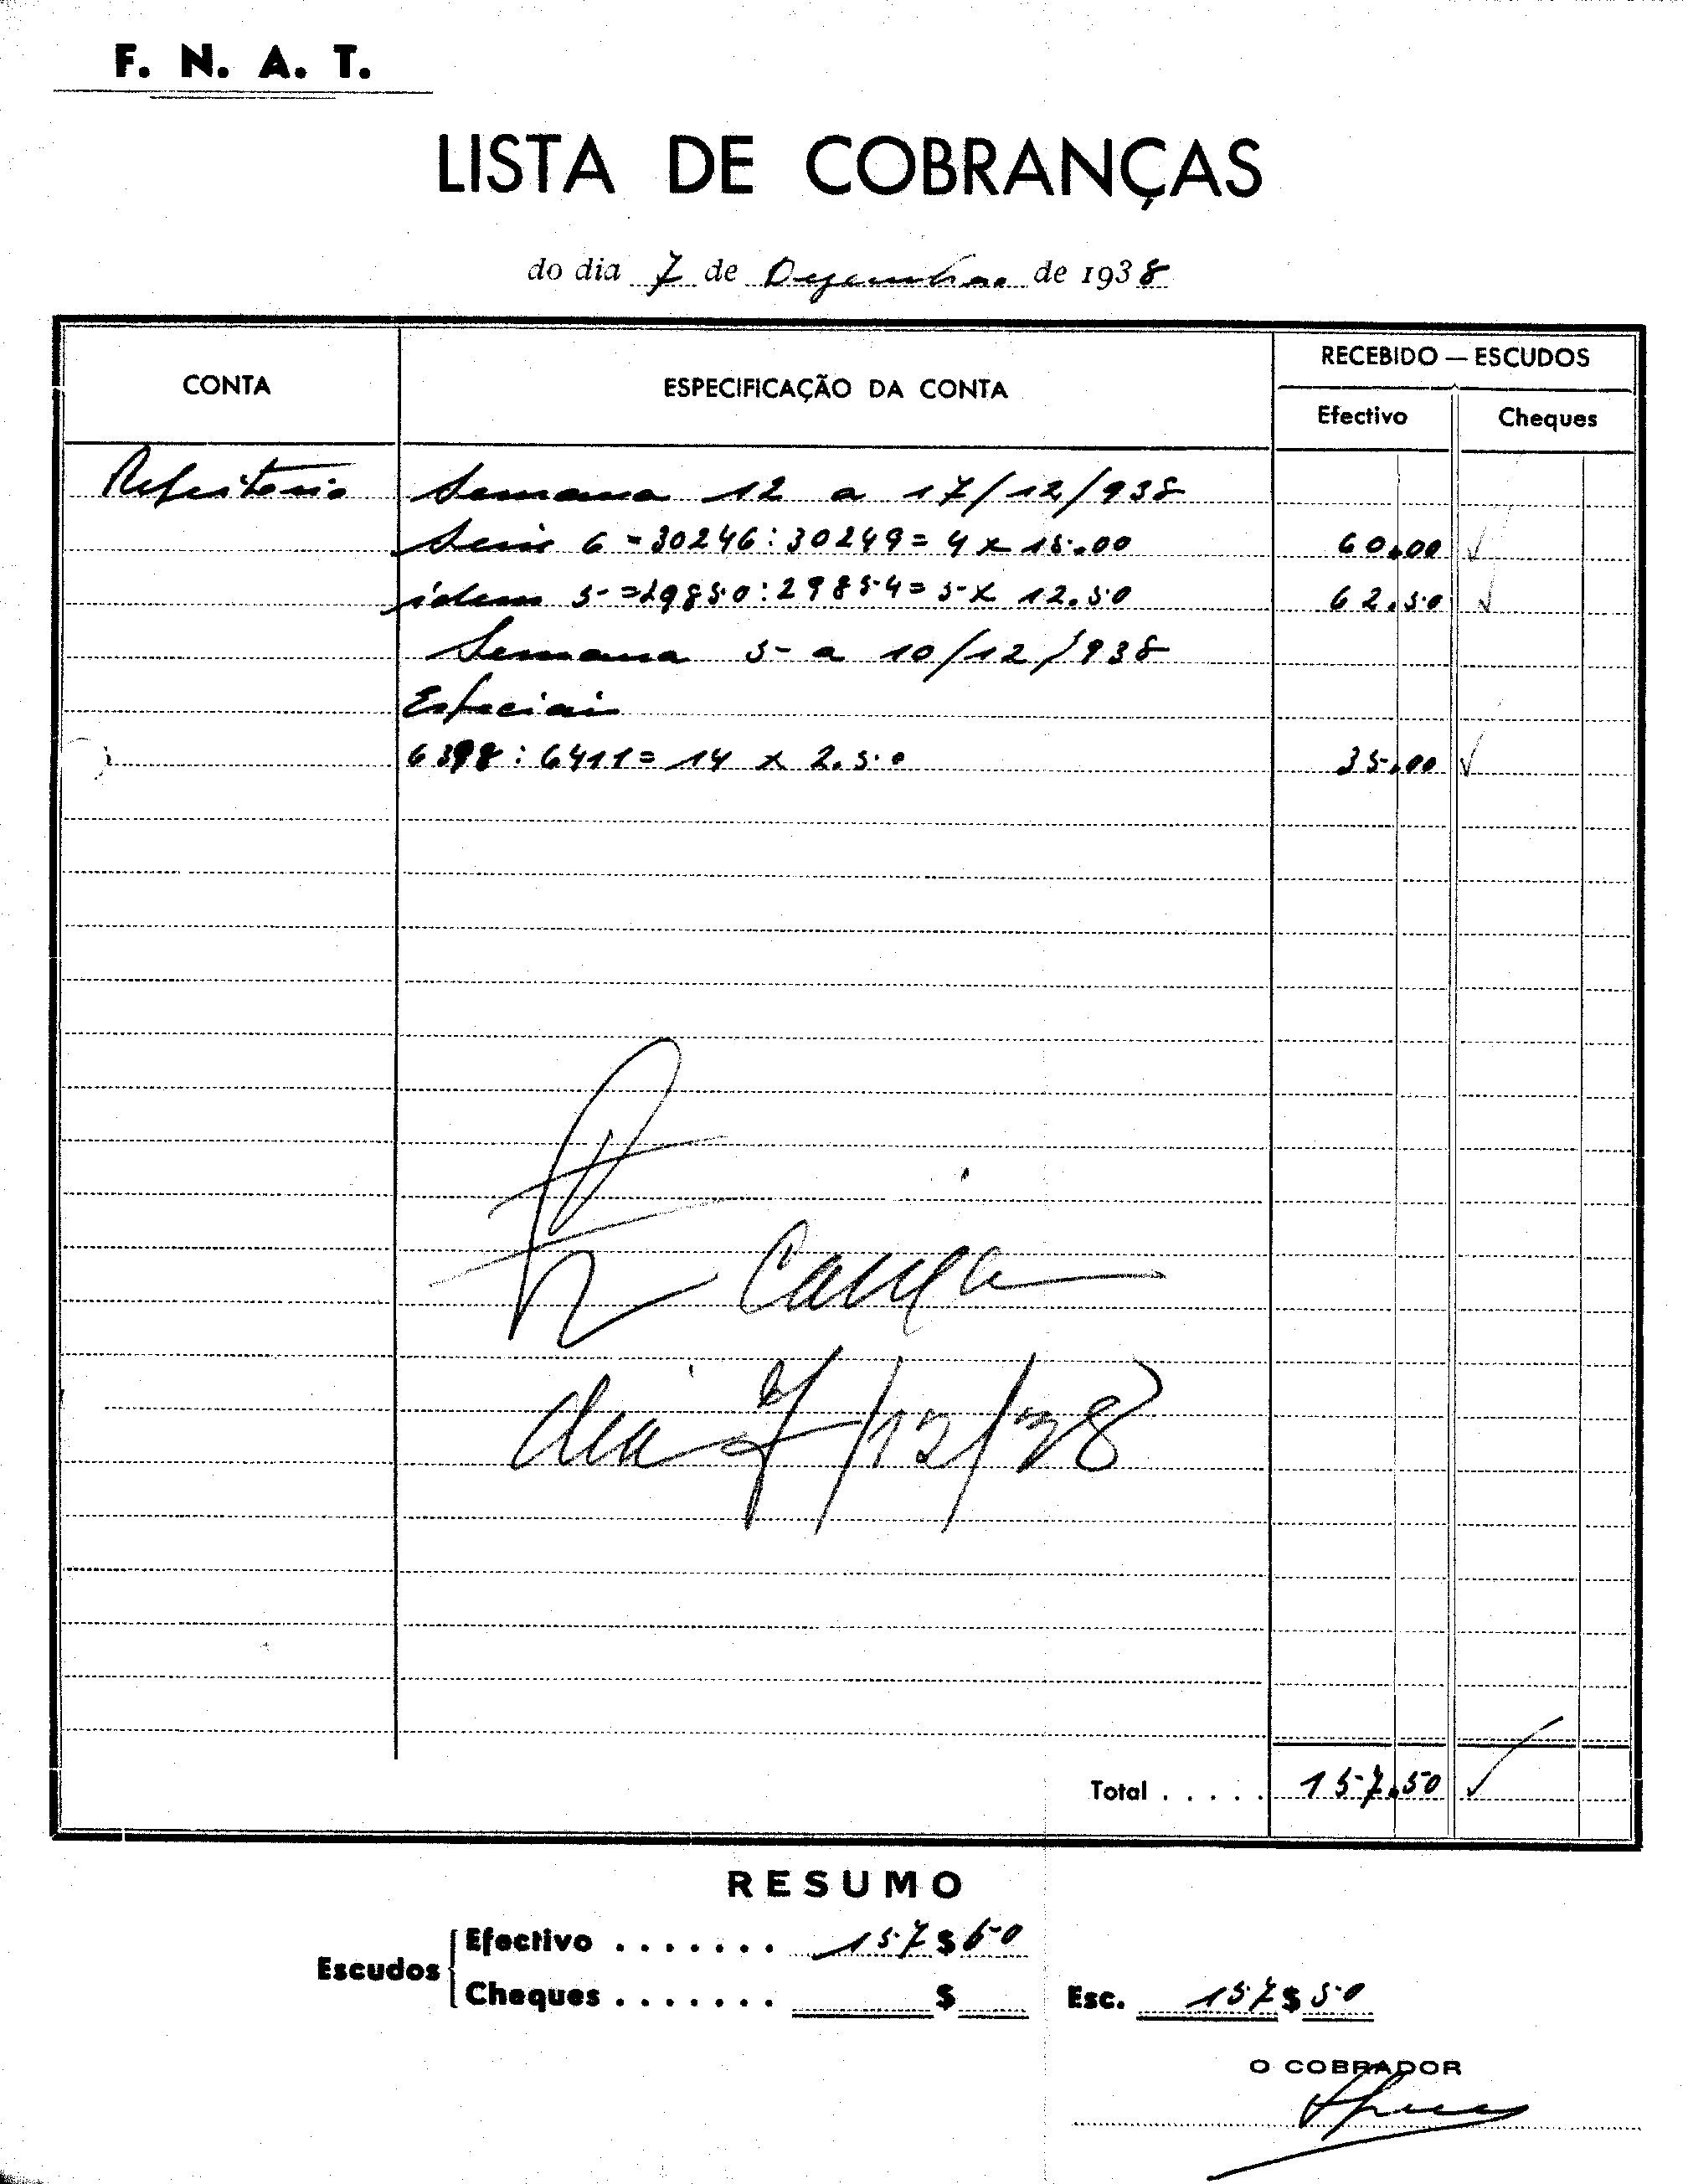 F. N. A. T.
LISTA DE COBRANÇAS
do dia 7 de Dezembro de 1938
CONTA ESPECIFICAÇÃO DA CONTA RECEBIDO — ESCUDOS
Efectivo Cheques
Refeitorio Semana 12 a 17/12/938
Serie 6 = 30246 : 30249 = 4 x 15.00 60.00
idem 5 = 29850 : 29854 = 5 x 12.50 62.50
Semana 5 a 10/12/938
Especiais
6398 : 6411 = 14 x 2.50 35.00
Caixa
dia 7/12/38
Total . . . . . 157.50
RESUMO
Escudos
Efectivo . . . . . . . 157$50
Cheques . . . . . . . $
Esc. 157$50
O COBRADOR